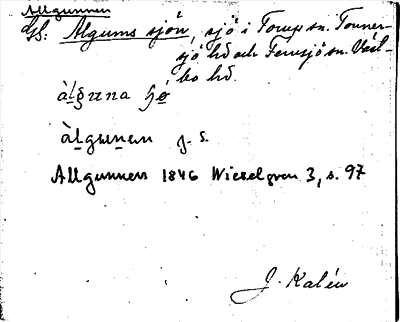 Allgunnen
Gs: Algums sjön, sjö i Torup sn. Tönner-
sjö hd och Femsjö sn. Väst-
bo hd.
àlguna
àlgunen g. s.
Allgunnen 1846 Wieselgren 3, s. 97
J. Kalén